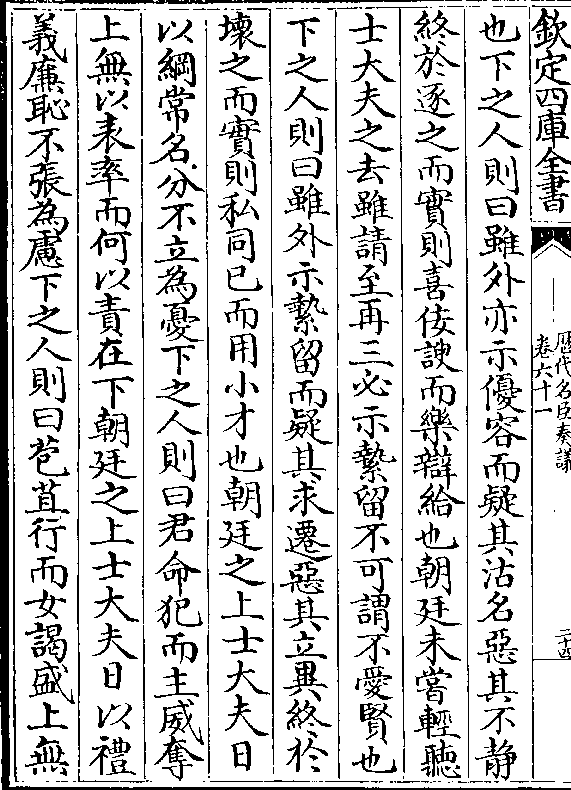 欽定四庫全書
歷代名臣奏議
卷六十一
二十四
也下之人則曰雖外亦示優容而疑其沽名惡其不静
終於逐之而實則喜佞諛而樂辯給也朝廷未嘗輕聽
士大夫之去雖請至再三必示縶留不可謂不愛賢也
下之人則曰雖外示縶留而疑其求遷惡其立異終於
壞之而實則私同己而用小才也朝廷之上士大夫日
以綱常名分不立為憂下之人則曰君命犯而主威奪
上無以表率而何以責在下朝廷之上士大夫日以禮
義廉恥不張為慮下之人則曰苞苴行而女謁盛上無